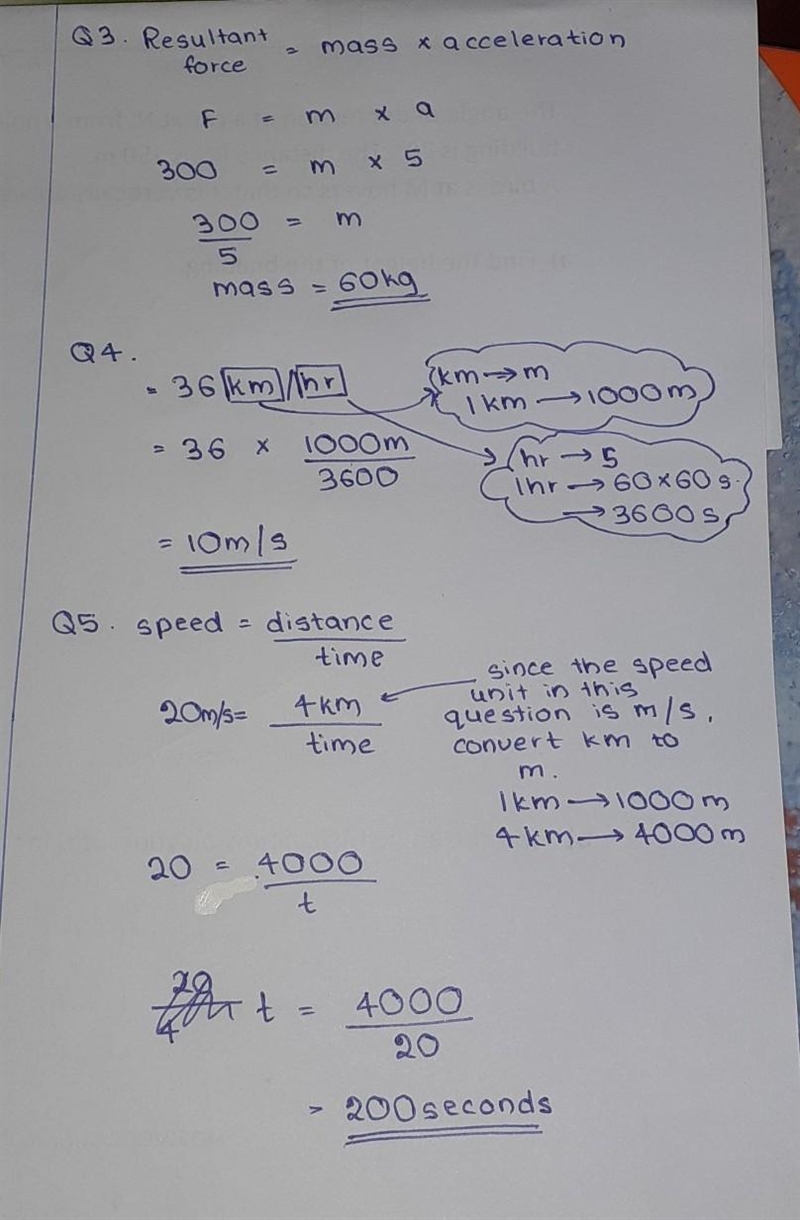 Q3. Resultant force = mass × acceleration
F = m × a
300 = m × 5
300/5 = m
mass = 60kg
Q4.
= 36 km/hr
km → m
1km → 1000m
= 36 × 1000m/3600
hr → s
1hr → 60×60s
→ 3600s
= 10m/s
Q5. speed = distance/time
20m/s = 4km/time
since the speed
unit in this
question is m/s,
convert km to
m.
1km → 1000m
4km → 4000m
20 = 4000/t
t = 4000/20
= 200seconds